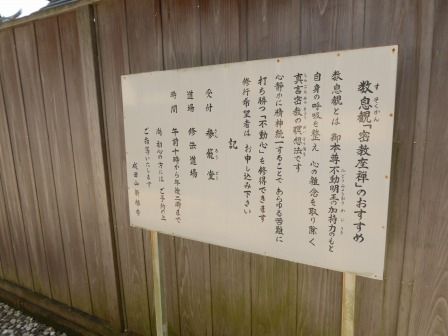 数息観「密教座禅」のおすすめ
数息観とは 御本尊不動明王の加持力のもと
自身の呼吸を整え 心の雑念を取り除く
真言密教の瞑想法です
心静かに精神統一することで あらゆる苦難に
打ち勝つ「不動心」も修得できます
修行希望者は お申し込み下さい
記
受付 参籠堂
道場 修法道場
時間 午前十時から午後二時まで
尚 初心の方には ご予約の上
ご指導いたします
成田山新勝寺